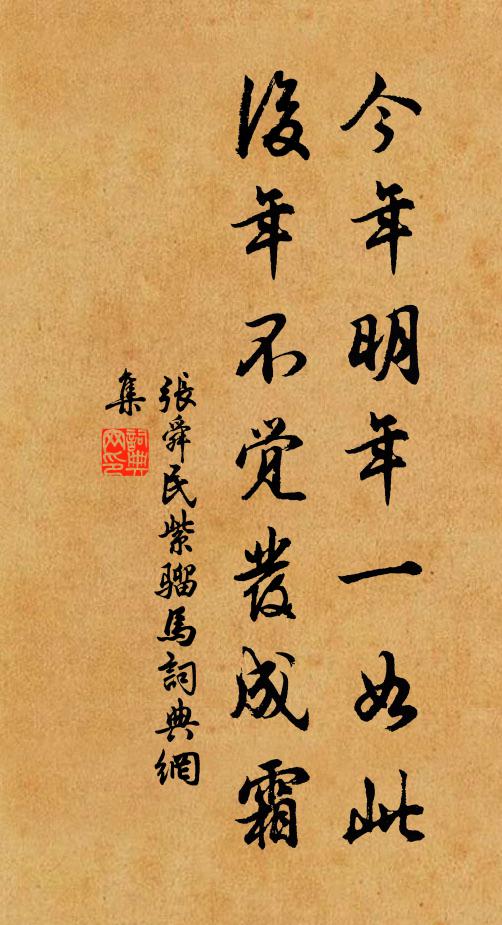 今年明年一如此
後年不觉發成霜
張舜民紫骝馬詞典網
集
詞典
网印